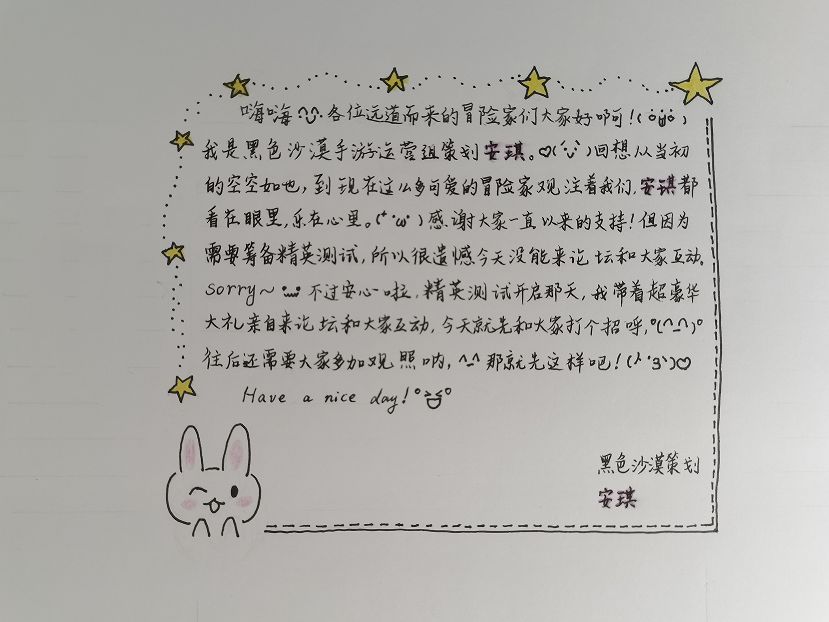 嗨嗨^‿^各位远道而来的冒险家们大家好啊!(ȯωȯ)
我是黑色沙漠手游运营组策划安琪。♡(´ᵕ`)回想从当初
的空空如也,到现在这么多可爱的冒险家观注着我们,安琪都
看在眼里,乐在心里。(*˙ω˙)感谢大家一直以来的支持!但因为
需要筹备精英测试,所以很遗憾今天没能来论坛和大家互动。
sorry~ 不过安心啦,精英测试开启那天,我带着超豪华
大礼亲自来论坛和大家互动,今天就先和大家打个招呼,°(^_^)°
往后还需要大家多加观照呐,^_^那就先这样吧!(ˊ˙3ˋ)♡
Have a nice day!°≥≤°
黑色沙漠策划
安琪